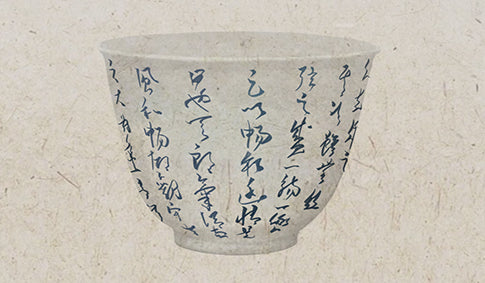 雖無絲
弦之盛一觴一詠
足以暢敘幽情是
日也天朗氣清惠
風和暢仰觀宇宙
之大俯察品類